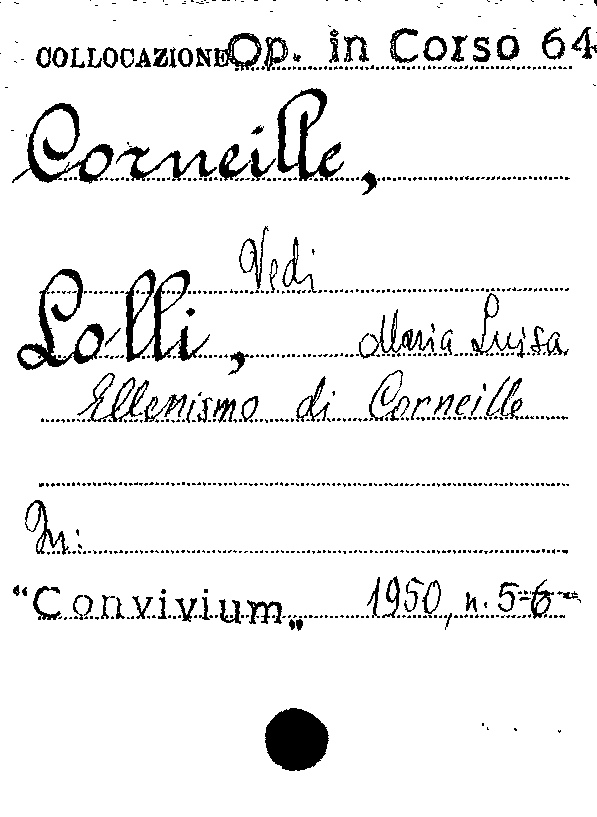 COLLOCAZIONE Op. in Corso 64
Corneille,
Vedi
Lolli, Maria Luisa
Ellenismo di Corneille
In:
"Convivium„ 1950, n. 5-6-